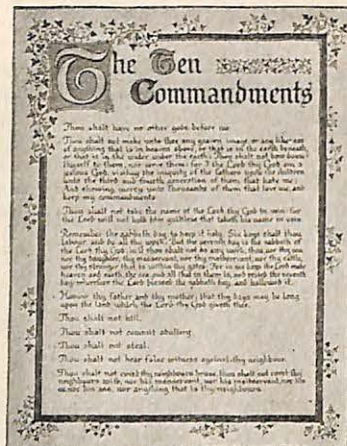 The Ten
Commandments
Thou shalt have no other gods before me.
Thou shalt not make unto thee any graven image, or any likeness
of anything that is in heaven above, or that is in the earth beneath,
or that is in the water under the earth: Thou shalt not bow down
thyself to them, nor serve them: for I the Lord thy God am a
jealous God, visiting the iniquity of the fathers upon the children
unto the third and fourth generation of them that hate me;
And shewing mercy unto thousands of them that love me, and
keep my commandments.
Thou shalt not take the name of the Lord thy God in vain: for
the Lord will not hold him guiltless that taketh his name in vain.
Remember the sabbath day to keep it holy. Six days shalt thou
labour, and do all thy work: But the seventh day is the sabbath of
the Lord thy God: in it thou shalt not do any work, thou, nor thy son,
nor thy daughter, thy manservant, nor thy maidservant, nor thy cattle,
nor thy stranger that is within thy gates: For in six days the Lord made
heaven and earth, the sea, and all that in them is, and rested the seventh
day: wherefore the Lord blessed the sabbath day, and hallowed it.
Honour thy father and thy mother: that thy days may be long
upon the land which the Lord thy God giveth thee.
Thou shalt not kill.
Thou shalt not commit adultery.
Thou shalt not steal.
Thou shalt not bear false witness against thy neighbour.
Thou shalt not covet thy neighbours house, thou shalt not covet thy
neighbours wife, nor his manservant, nor his maidservant, nor his
ox, nor his ass, nor anything that is thy neighbours.